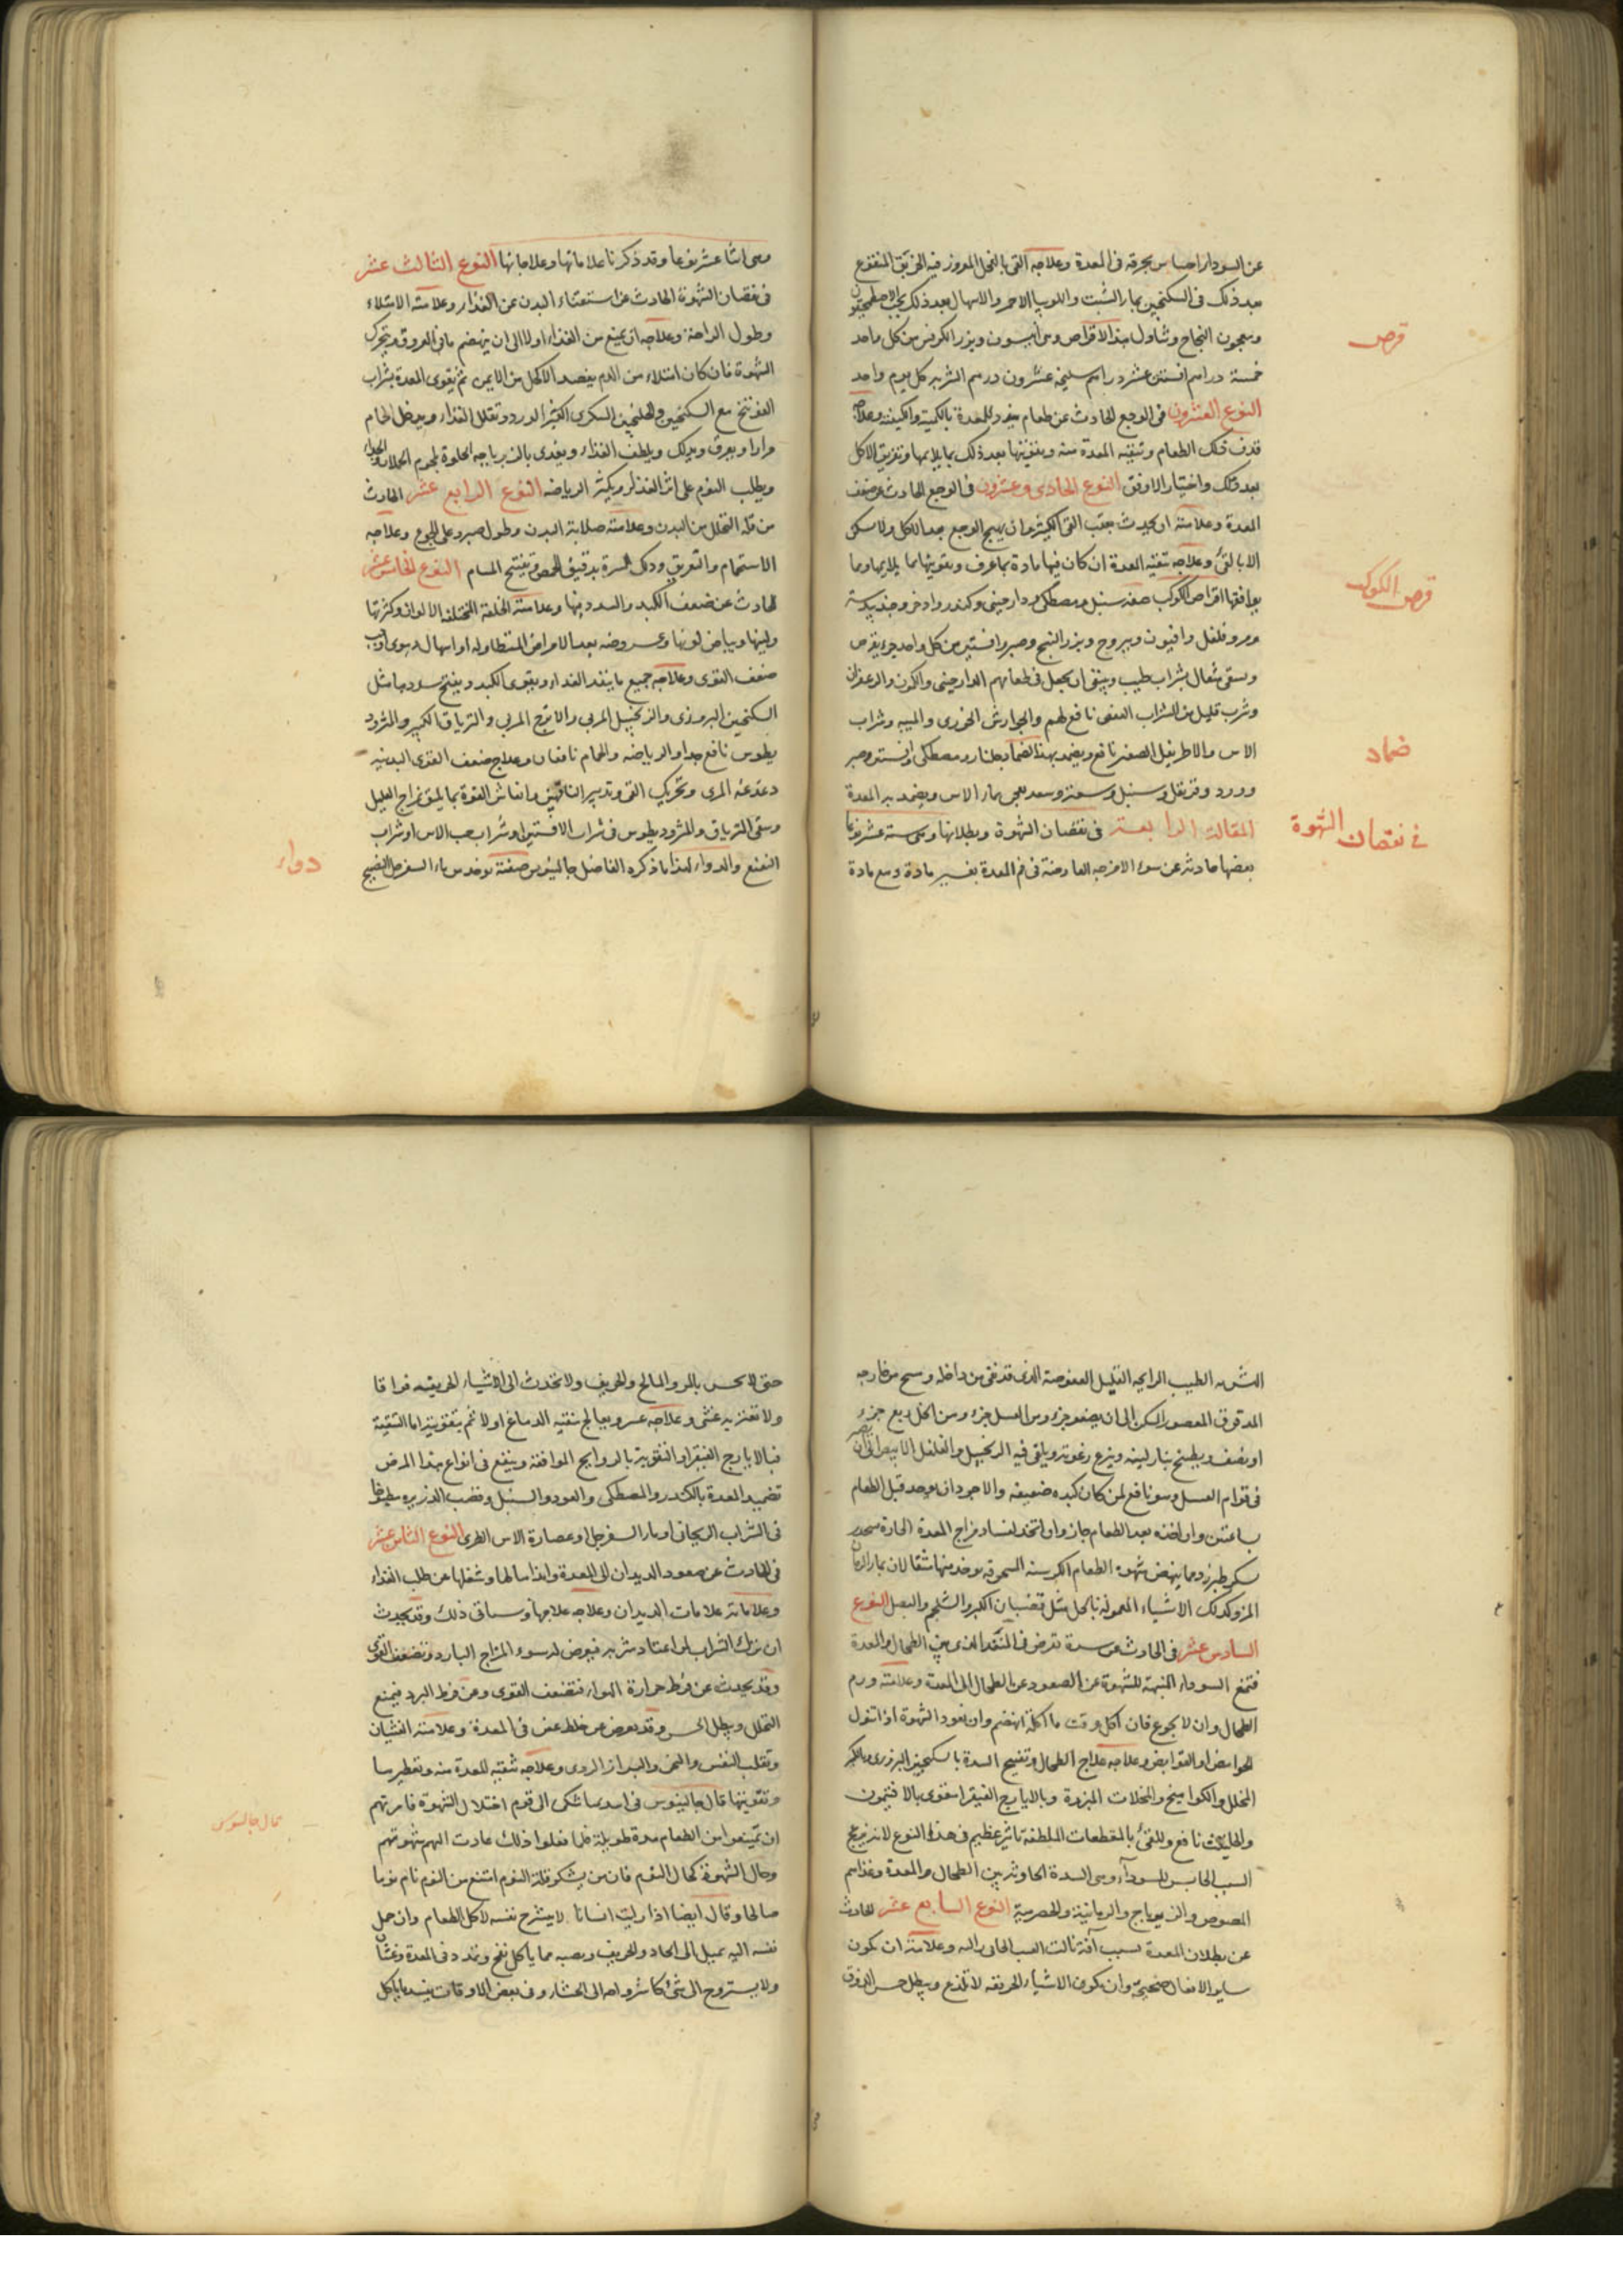 عن السوداء احساس بحرقة فى المعدة وعلاجه القى بالفجل المغروز فيه الخربق المنقوع
بعد ذلك فى السكنجبين بماء الشبت واللوبيا الاحمر والاسهال بعد ذلك بحب الاصطمخيقون
ومعجون النجاح وتناول هذا الاقراص وهى انيسون وبزر الكرفس من كل واحد
خمسة دراهم افسنتين عشر دراهم سليخه عشرون درهم الشربه كل يوم واحد
النوع العشرون فى الوجع الحادث عن طعام يفرد للمعدة بالكمية والكيفية وعلاجه
قذف ذلك الطعام وتنقيته المعدة منه وتقويتها بعد ذلك بما يلايمها وتفريق الاكل
بعد ذلك واختيار الاوفق النوع الحادى وعشرون فى الوجع الحادث عن ضعف
المعدة وعلامته ان يحدث بعقب القى الكثير وان يهيج الوجع بعد الاكل ولا يسكن
الا بالقئ وعلاجه تنقيه المعدة ان كان فيها مادة بما عرف وتقويتها بما يلايمها ومما
يوافقها اقراص الكوكب صفته سنبل ومصطكى ودارچينى وكندر واذخر وجندبيدستر
ومر وفلفل وافيون ويبروح وبزر البنج وصبر وافسنتين من كل واحد جزء يقرص
ويسقى مثقال بشراب طيب وينبغى ان يجعل فى طعامهم الدارچينى والكمون والزعفران
وشرب قليل من الشراب العفص نافع لهم والجوارش الخوزى والميبه وشراب
الاس والاطريفل الصغير نافع ويضمد بهذا الضماد جلنار ومصطكى وافسنتين وصبر
وورد وقرنفل وسنبل وسعتر وسعد يعجن بماء الاس ويضمد به المعدة
المقالة الرابعة فى نقصان الشهوة وبطلانها وهى ستة عشر نوعا
بعضها حادثه عن سوء الامزجه العارضة فى فم المعدة بغير مادة ومع مادة
قرص
قرص الكوكب
ضماد
فى نقصان الشهوة
وهى اثنا عشر نوعا وقد ذكرنا علاماتها وعلاجاتها النوع الثالث عشر
فى نقصان الشهوة الحادث عن استغناء البدن عن الغذاء وعلامته الامتلاء
وطول الراحة وعلاجه ان يمنع من الغذاء اولا الى ان ينهضم ما فى العروق وتتحرك
الشهوة فان كان امتلاء من الدم يفصد الاكحل من الايمن ثم يقوى المعدة بشراب
الفوتنج مع السكنجبين والجلنجبين السكرى الكثير الورد وتقلل الغذاء ويدخل الحمام
مرارا ويعرق ويدلك ويلطف الغذاء ويغذى بالزيرباجه الحلوة بلحوم الحملان والجداء
ويطلب النوم على اثر الغذاء ويكثر الرياضه النوع الرابع عشر الحادث
من قلة التحلل من البدن وعلامته صلابة البدن وطول صبره على الجوع وعلاجه
الاستحمام والتعريق ودلك البشرة بدقيق الحمص وتفتيح المسام النوع الخامس عشر
الحادث عن ضعف الكبد والسدد فيها وعلامته الخلفة المختلفه الالوان وكثرتها
ولينها وبياض لونها وعروضه بعد الامراض المتطاوله او اسهال دموى اوجب
ضعف القوى وعلاجه جميع ما ينفذ الغذاء ويقوى الكبد ويفتح سددها مثل
السكنجبين البزورى والزنجبيل المربى والاترج المربى والترياق الكبير والمثرود
يطوس نافع جدا والرياضه والحمام نافعان وعلاج ضعف القوى البدنيه
دغدغة المرى وتحريك القى وتدبير الناقهين وانعاش القوة بما يليق بمزاج العليل
وسقى الترياق والمثروديطوس فى شراب الافسنتين او شراب حب الاس او شراب
النعنع والدواء لهذا ما ذكره الفاضل جالينوس صفته يوخذ من ماء السفرجل النضيج
دواء
الطيب الرايحه القليل العفوصة الذى قد نقى من داخله ومسح من خارجه
المدقوق المعصور السكن الى ان يصفو جزء ومن العسل جزء ومن الخل ربع جزء
او نصف ويطبخ بنار لينه وينزع رغوته ويلقى فيه الزنجبيل والفلفل الابيض الى ان يصير
فى قوام العسل وهو نافع لمن كان كبده ضعيفه والاجود ان يوخذ قبل الطعام
بساعتين وان اخذه بعد الطعام جاز وان اتخذ لفساد مزاج المعدة الحارة
سكر طبرزد ومما ينهض شهوة الطعام الكرسنه المسحوقه يوخذ منها مثقالان بماء الرمان
المز وكذلك الاشياء المعموله بالخل مثل قضبان الكبر والشلجم والبصل النوع
السادس عشر فى الحادث عن سدة تعرض فى المنفذ الذى بين الطحال والمعدة
فتمنع السوداء المنبهة للشهوة عن الصعود عن الطحال الى المعدة وعلامته ورم
الطحال وان لا يجوع فان اكل وقت ما اكله انهضم وان تعود الشهوة اذا تناول
الحوامض او القوابض وعلاجه علاج الطحال وتفتيح السدة بالسكنجبين البزورى والكبر
المخلل والكواميخ والمخللات المبزرة وبالايارج الفيقرا مقوى بالافتيمون
والحلتيت نافع وللقئ بالمقطعات الملطفه تاثير عظيم فى هذا النوع لانه يزعج
السبب الحابس للسوداء وهى السدة الحادثه بين الطحال والمعدة وغذاهم
المصوص والزيرباج والرمانية والحصرمية النوع السابع عشر الحادث
عن بطلان المعدة بسبب آفة نالت العصب الجائى اليه وعلامته ان تكون
ساير الافعال صحيحة وان تكون الاشياء الحريفه لا تلذع ويبطل حس الذوق
حتى لا يحس بالمر والمالح والحريف ولا تحدث الى الاشياء الحريفه فواقا
ولا تعتريه غشى وعلاجه عسر ويعالج بتنقية الدماغ اولا ثم بتقويته اما التنقية
فبالايارج الفيقرا والتقوية بالروايح الموافقة وينفع فى انواع هذا المرض
تضميد المعدة بالكندر والمصطكى والعود والسنبل وقصب الذريره مطبوخا
فى الشراب الريحانى او ماء السفرجل او عصارة الاس الطرى النوع الثامن عشر
فى الحادث عن صعود الديدان الى المعدة وايذائها لها وشغلها عن طلب الغذاء
وعلاماته علامات الديدان وعلاجه علاجها وسياتى ذلك وقد يحدث
ان ترك الشراب لمن اعتاد شربه فيعرض له سوء المزاج البارد وتضعف القوى
وقد يحدث عن فرط حرارة الهواء فتضعف القوى وعن فرط البرد فيمنع
التحلل ويبطل الحس وقد يعرض من خلط عفن فى المعدة وعلامته الغشيان
وتقلب النفس والبخر والبراز الردى وعلاجه تنقيه للمعدة منه وتعطيرها
وتقويتها قال جالينوس فى اسد ما شكى الى قوم اختلال الشهوة فامرتهم
ان يمتنعوا من الطعام مدة طويلة فلما فعلوا ذلك عادت اليهم شهوتهم
وحال الشهوة كحال النوم فان من يشكو قلة النوم امتنع من النوم نام نوما
صالحا وقال ايضا اذا رايت انسانا لا ينشرح نفسه لاكل الطعام وان حمل
نفسه اليه يميل الى الحاد والحريف ويصيبه مما ياكل نفخ وتمدد فى المعدة وغثيان
ولا يستروح الى شئ كاستروا حه الى الجشاء وفى بعض الاوقات يفسد ما ياكل
قال جالينوس